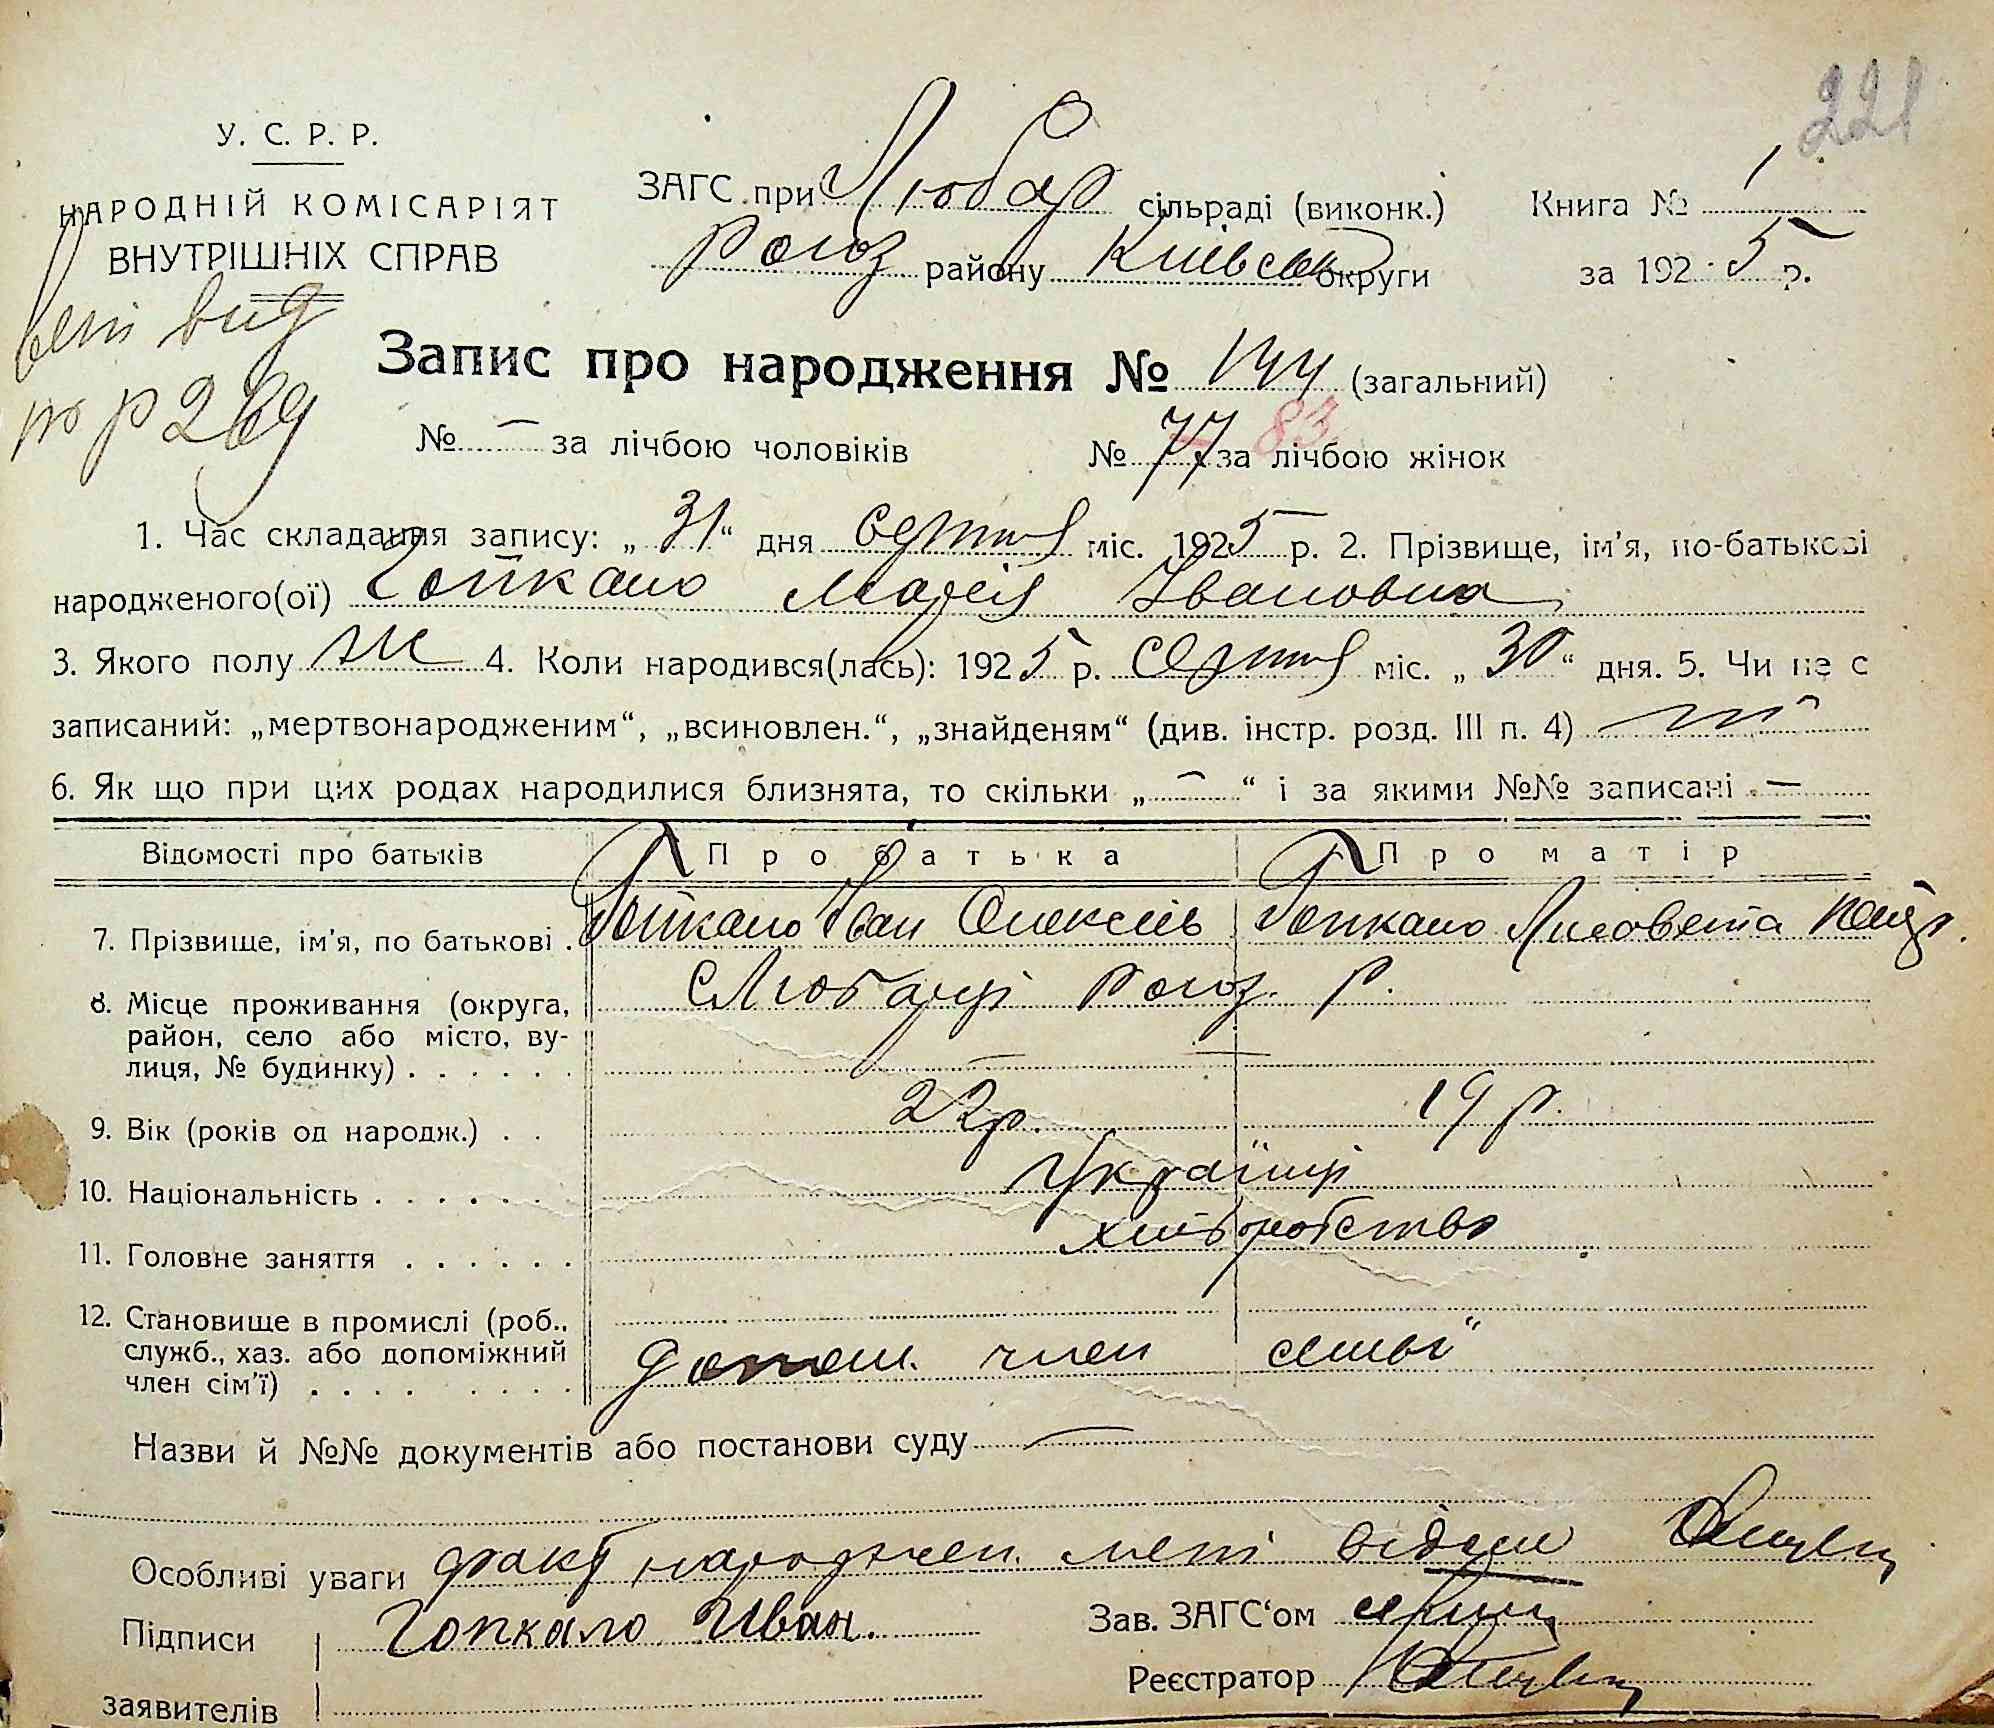 221
У. С. Р. Р.
НАРОДНІЙ КОМІСАРІЯТ
ВНУТРІШНІХ СПРАВ
ЗАГС при Любар сільраді (виконк.) Книга № 1
Рогоз району Київськ округи за 1925 р.
вид
Запис про народження № 144 (загальний)
№ — за лічбою чоловіків № 77 83 за лічбою жінок
1. Час складання запису: „31“ дня серпня міс. 1925 р. 2. Прізвище, ім'я, по-батькові
народженого(ої) Гопкало Марія Івановна
3. Якого полу ж 4. Коли народився(лась): 1925 р. серпня міс. „30“ дня. 5. Чи не є
записаний: „мертвонародженим“, „всиновлен.“, „знайденям“ (див. інстр. розд. III п. 4)
6. Як що при цих родах народилися близнята, то скільки „—“ і за якими №№ записані —
Відомості про батьків Про батька Про матір
7. Прізвище, ім'я, по батькові . Гопкало Іван Олексіїв Гопкало Лисовета
8. Місце проживання (округа, с Любарці Рогоз. р.
район, село або місто, ву-
лиця, № будинку) . . . . . . — —
9. Вік (років од народж.) . . 22 р. 19 р.
10. Національність . . . . . . Українці
11. Головне заняття . . . . . . хліборобство
12. Становище в промислі (роб.,
служб., хаз. або допоміжний допом. член семьї
член сім'ї) . . . . . . . .
Назви й №№ документів або постанови суду —
Особливі уваги факт народжен. мені відом
Підписи Гопкало Иван. Зав. ЗАГС'ом
Реєстратор
заявителів